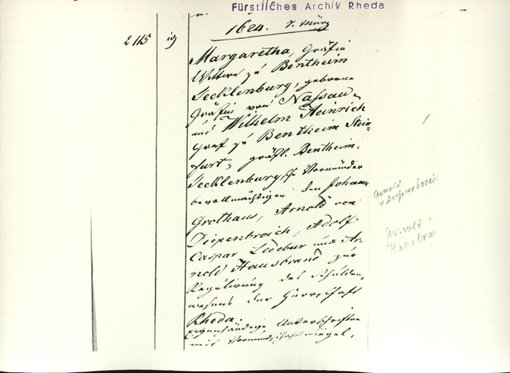 Fürstliches Archiv Rheda
1624. 7. März
2115
Margaretha, Gräfin
Witwe zu Bentheim
Tecklenburg, geborene
Gräfin von Nassau
und Wilhelm Heinrich
Graf zu Bentheim Stein-
furt, gräfl. Bentheim-
Tecklenburgische Vormünder
bevollmächtigen den Johann
Grothaus, Arnold von
Diepenbroich, Adolf
Caspar Ledebur und Ar-
nold Hausbrand zur
Regulirung des Schulden-
wesens der Herrschaft
Rheda.
eigenhändige Unterschriften
mit Vormundschaftssiegel.
Arnold
Arnold